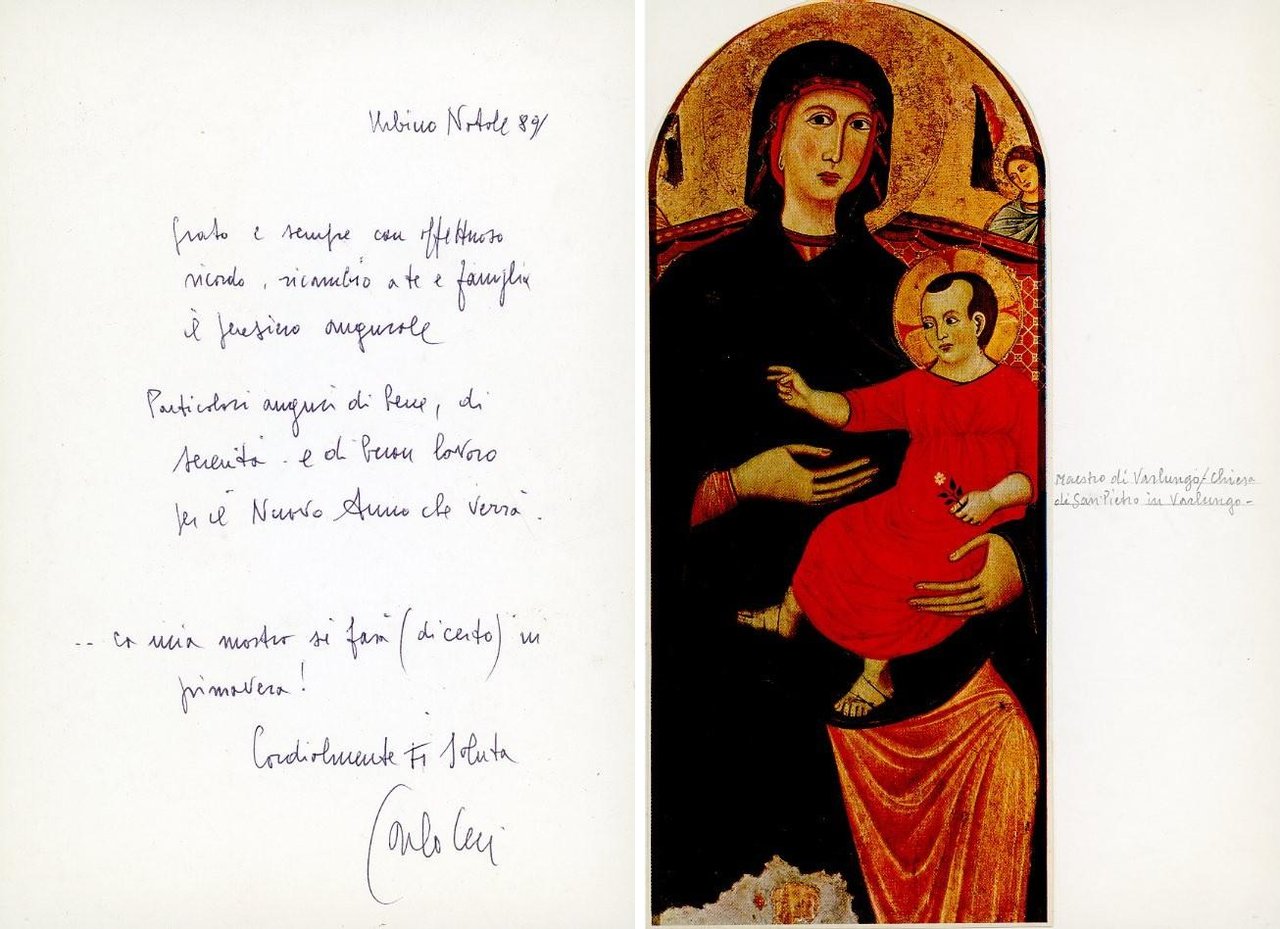 Urbino Natale 89/
Grato e sempre con affettuoso
ricordo, ricambio a te e famiglia
il pensiero augurale
Particolari auguri di bene, di
serenità - e di buon lavoro
per il Nuovo Anno che verrà.
... la mia mostra si farà (di certo) in
primavera!
Cordialmente ti saluta
Carlo Ceci
Maestro di Varlungo/Chiesa
di San Pietro in Varlungo-